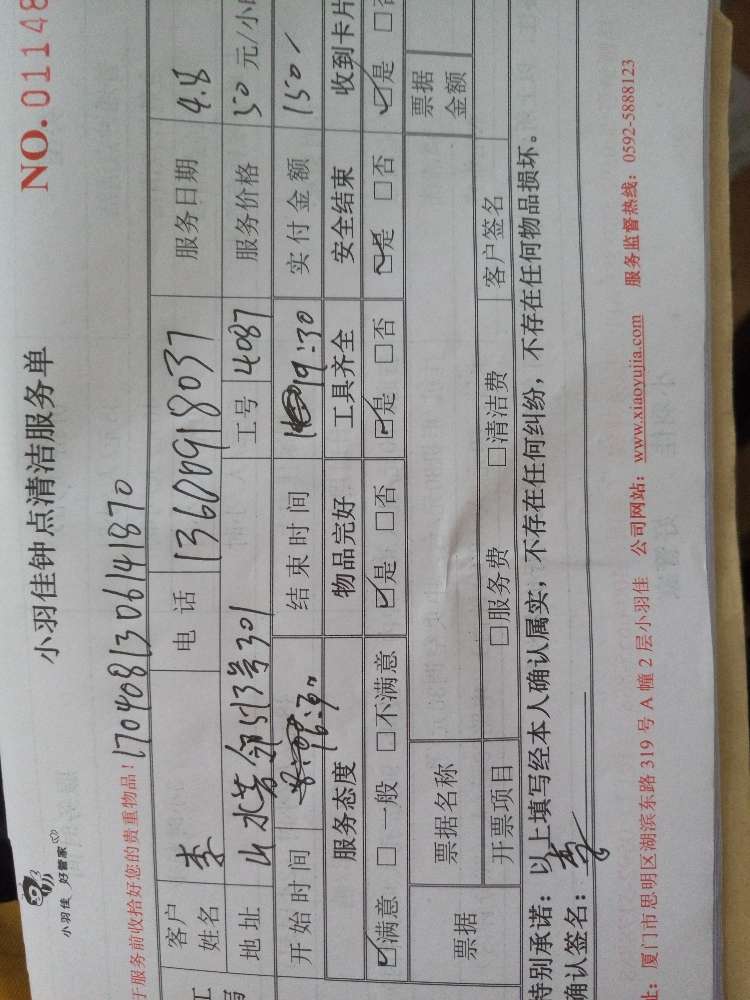 小羽佳 好管家
小羽佳钟点清洁服务单
NO.01148
于服务前收拾好您的贵重物品!
1704081306141870
客户姓名 李 电话 13600918037 服务日期 4.8
地址 山水芳邻513号301 工号 4087 服务价格 50 元/小
开始时间 16:30 结束时间 19:30 实付金额 150/
服务态度 物品完好 工具齐全 安全结束 收到卡片
☑满意 □一般 □不满意 ☑是 □否 ☑是 □否 ☑是 □否 ☑是
票据 票据名称 票据金额
开票项目 □服务费 □清洁费 客户签名
特别承诺:以上填写经本人确认属实,不存在任何纠纷,不存在任何物品损坏。
确认签名:李
址:厦门市思明区湖滨东路319号A幢2层小羽佳 公司网站:www.xiaoyujia.com 服务监督热线:0592-5888123